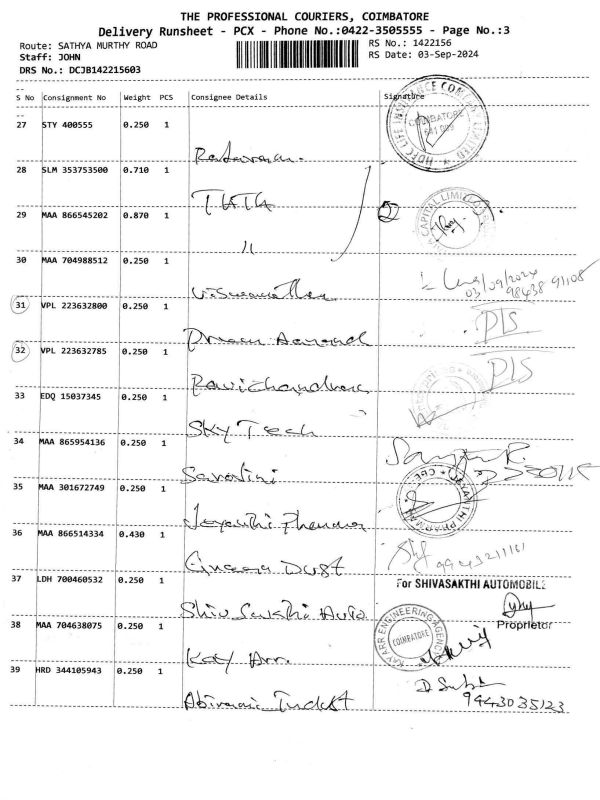 THE PROFESSIONAL COURIERS, COIMBATORE
Delivery Runsheet - PCX - Phone No.:0422-3505555 - Page No.:3
Route: SATHYA MURTHY ROAD
RS No.: 1422156
Staff: JOHN
RS Date: 03-Sep-2024
DRS No.: DCJB142215603
S No Consignment No Weight PCS Consignee Details Signature
27 STY 400555 0.250 1
HDFC LIFE INSURANCE COMPANY LIMITED
COIMBATORE
28 SLM 353753500 0.710 1
TATA
29 MAA 866545202 0.870 1
CAPITAL LIMITED
11
30 MAA 704988512 0.250 1
Viswanathan
03/09/2024
98438 91108
31 VPL 223632800 0.250 1
Prem Anand
DIS
32 VPL 223632785 0.250 1
Ravichandran
DIS
33 EDQ 15037345 0.250 1
Sky Tech
34 MAA 865954136 0.250 1
Sarojini
35 MAA 301672749 0.250 1
Jayanthi Pharma
JAYANTHI PHARMA
CBE
36 MAA 866514334 0.430 1
37 LDH 700460532 0.250 1
Shiv Sakthi Auto
For SHIVASAKTHI AUTOMOBILE
Proprietor
38 MAA 704638075 0.250 1
Kay Arr.
KAY ARR ENGINEERING AGENCY
COIMBATORE
39 HRD 344105943 0.250 1
Abirami Indust
9443035123